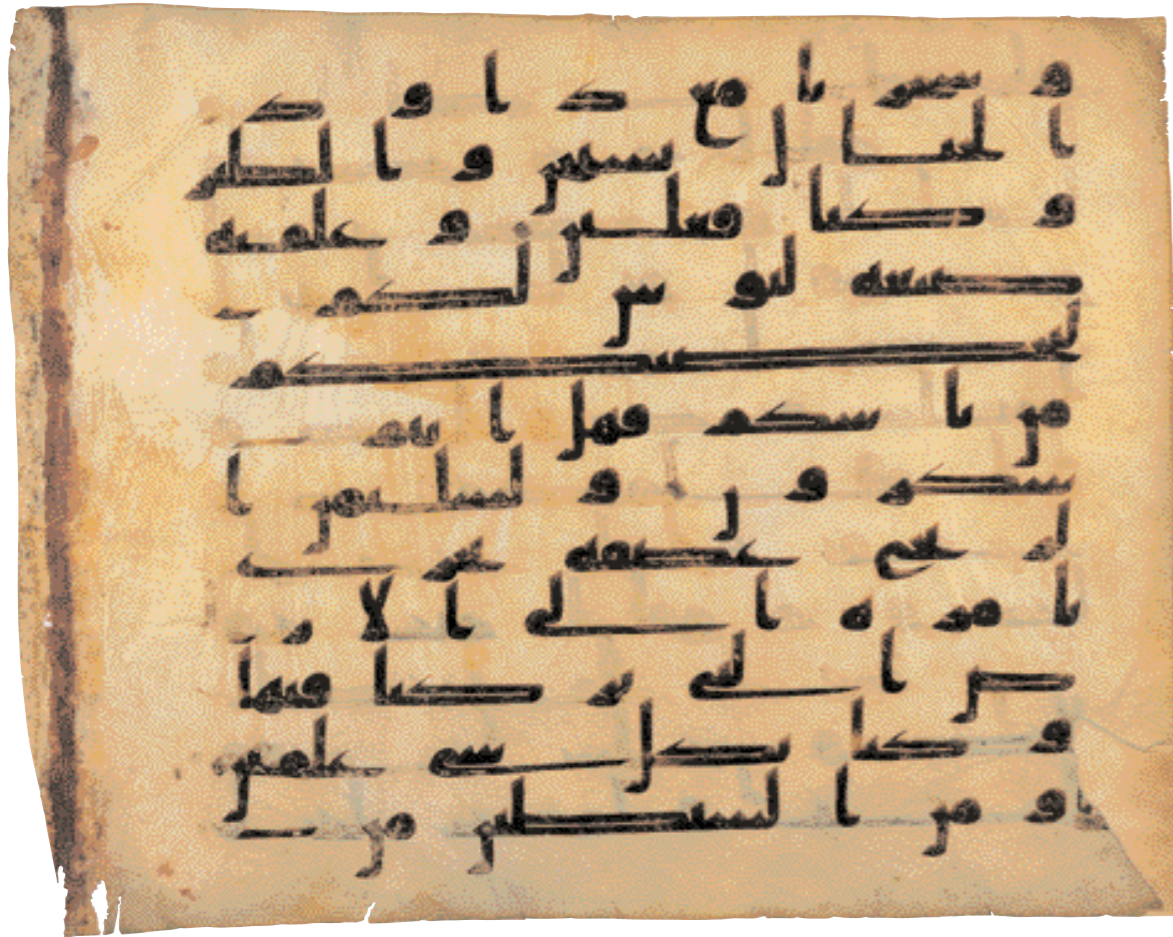 و سخرنا مع داود
الجبال يسبحن والطير
وكنا فعلين وعلمنه
صنعة لبوس لكم
لتحصنكم
من باسكم فهل انتم
شكرون ولسليمن ا
لريح عصفة تجري
بامره الى الار
ض التي بركنا فيها
وكنا بكل شي علمين
ومن الشيطين من